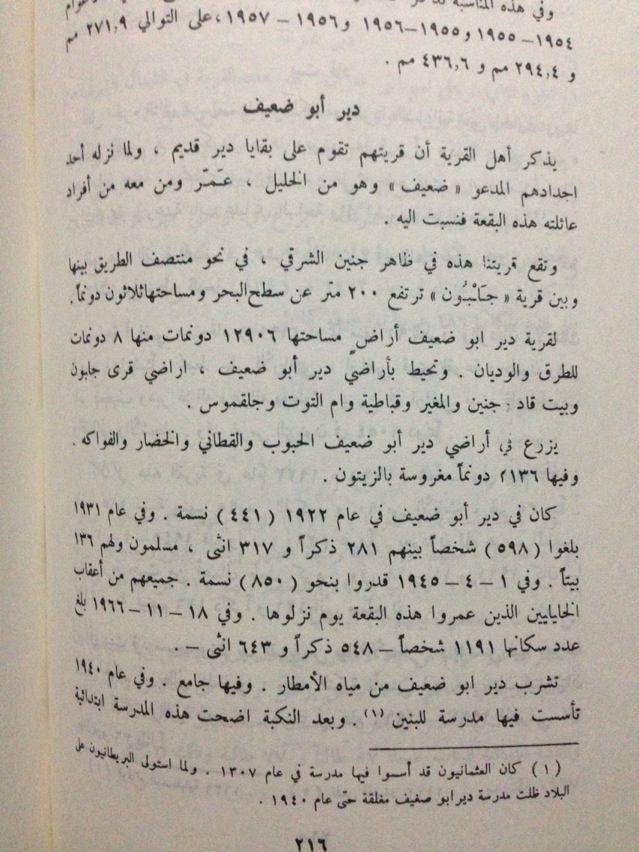 وفي هذه المناسبة
١٩٥٤ – ١٩٥٥ و ١٩٥٥–١٩٥٦ و ١٩٥٦ – ١٩٥٧ ،على التوالي ٢٧١,٩ مم
و ٢٩٤,٤ مم و ٤٣٦,٦ مم .
دير أبو ضعيف
يذكر أهل القرية أن قريتهم تقوم على بقايا دير قديم ، ولما نزله أحد
اجدادهم المدعو « ضعيف » وهو من الخليل ، عَـمّـر ومن معه من أفراد
عائلته هذه البقعة فنسبت اليه .
وتقع قريتنا هذه في ظاهر جنين الشرقي ، في نحو منتصف الطريق بينها
وبين قرية « جَلْبُون » ترتفع ٢٠٠ متر عن سطح البحر ومساحتها ثلاثون دونماً.
لقرية دير ابو ضعيف أراضٍ مساحتها ١٢٩٠٦ دونمات منها ٨ دونمات
للطرق والوديان . وتحيط بأراضي دير أبو ضعيف ، اراضي قرى جلبون
وبيت قاد وجنين والمغير وقباطية وام التوت وجلقموس .
يزرع في أراضي دير أبو ضعيف الحبوب والقطاني والخضار والفواكه .
وفيها ٢١٣٦ دونماً مغروسة بالزيتون .
كان في دير أبو ضعيف في عام ١٩٢٢ ( ٤٤١ ) نسمة . وفي عام ١٩٣١
بلغوا ( ٥٩٨ ) شخصاً بينهم ٢٨١ ذكراً و ٣١٧ انثى ، مسلمون ولهم ١٣٦
بيتاً . وفي ١ – ٤ – ١٩٤٥ قدروا بنحو ( ٨٥٠ ) نسمة . جميعهم من أعقاب
الخليليين الذين عمروا هذه البقعة يوم نزلوها . وفي ١٨ – ١١ – ١٩٦٦ بلغ
عدد سكانها ١١٩١ شخصاً – ٥٤٨ ذكراً و ٦٤٣ انثى – .
تشرب دير ابو ضعيف من مياه الأمطار . وفيها جامع . وفي عام ١٩٤٠
تأسست فيها مدرسة للبنين (١) . وبعد النكبة اضحت هذه المدرسة ابتدائية
( ١ ) كان العثمانيون قد أسسوا فيها مدرسة في عام ١٣٠٧ . ولما استولى البريطانيون على
البلاد ظلت مدرسة دير ابو ضعيف مغلقة حتى عام ١٩٤٠ .
٢١٦